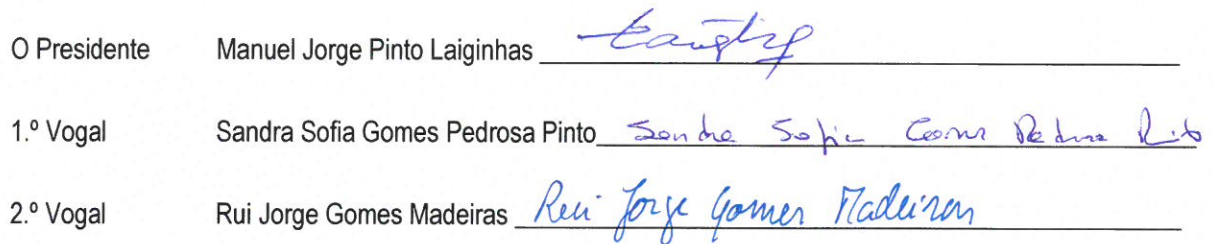 O Presidente Manuel Jorge Pinto Laiginhas Laiginhas
1.º Vogal Sandra Sofia Gomes Pedrosa Pinto Sandra Sofia Gomes Pedrosa Pinto
2.º Vogal Rui Jorge Gomes Madeiras Rui Jorge Gomes Madeiras